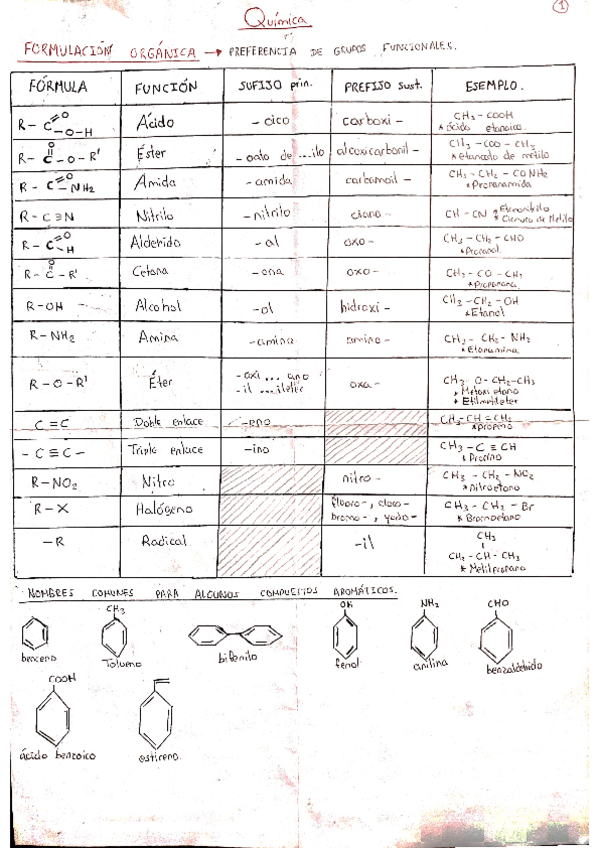 Química
1
FORMULACIÓN ORGÁNICA → PREFERENCIA DE GRUPOS FUNCIONALES.
FÓRMULA FUNCIÓN SUFIJO prin. PREFIJO sust. EJEMPLO.
R-C=O-O-H Ácido -oico carboxi- CH3-COOH
* ácido etanoico
R-C=O-O-R' Éster -oato de ...ilo alcoxicarbonil- CH3-COO-CH3
* etanoato de metilo
R-C=O NH2 Amida -amida carbamoil- CH3-CH2-CONH2
* Propanamida
R-C≡N Nitrilo -nitrilo ciano- CH-CN * Etanonitrilo
* Cianuro de Metilo
R-C=O H Aldehído -al oxo- CH3-CH2-CHO
* Propanal
R-C=O-R' Cetona -ona oxo- CH3-CO-CH3
* Propanona
R-OH Alcohol -ol hidroxi- CH3-CH2-OH
* Etanol
R-NH2 Amina -amina amino- CH3-CH2-NH2
* Etanamina
R-O-R' Éter -oxi ... ano oxa- CH3-O-CH2-CH3
-il ...iléter * Metoxi etano
* Etilmetiléter
C=C Doble enlace -eno CH3-CH=CH2
* propeno
-C≡C- Triple enlace -ino CH3-C≡CH
* Propino
R-NO2 Nitro nitro- CH3-CH2-NO2
* Nitroetano
R-X Halógeno fluoro-, cloro- CH3-CH2-Br
bromo-, yodo- * Bromoetano
-R Radical -il CH3
CH2-CH-CH3
* Metilpropano
NOMBRES COMUNES PARA ALGUNOS COMPUESTOS AROMÁTICOS.
CH3 OH NH2 CHO
benceno Tolueno bifenilo fenol anilina benzaldehído
COOH
ácido benzoico estireno.